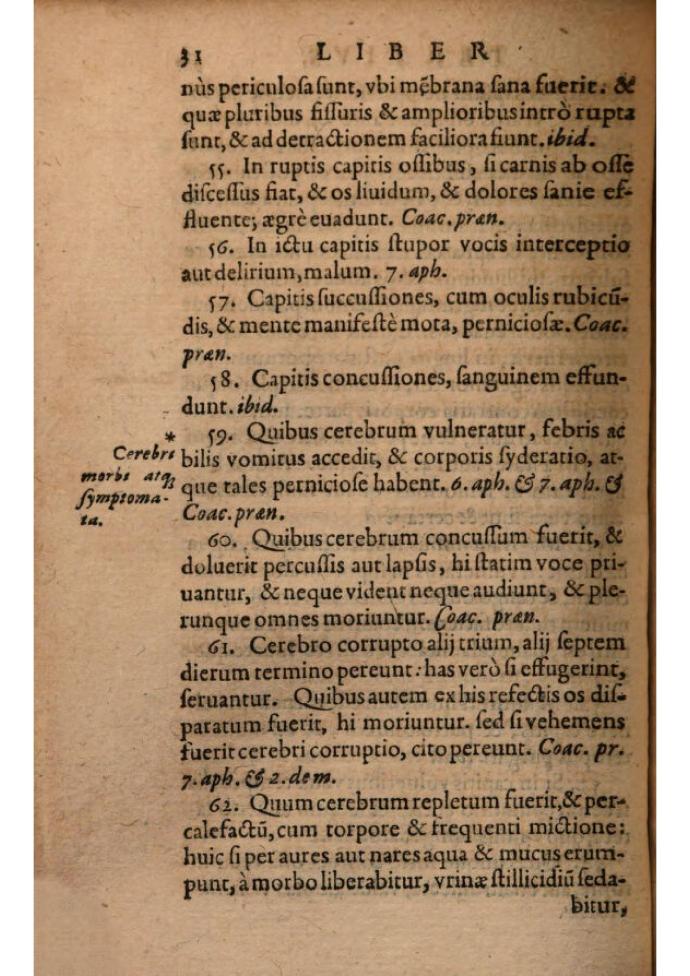 31 LIBER
nùs periculosa sunt, vbi mẽbrana sana fuerit. &
quæ pluribus fissuris & amplioribus intrò rupta
sunt, & ad detractionem faciliora fiunt. ibid.
55. In ruptis capitis ossibus, si carnis ab osse
discessus fiat, & os liuidum, & dolores sanie ef-
fluente; ægrè euadunt. Coac. præn.
56. In ictu capitis stupor vocis interceptio
aut delirium, malum. 7. aph.
57. Capitis succussiones, cum oculis rubicũ-
dis, & mente manifestè mota, perniciosæ. Coac.
præn.
58. Capitis concussiones, sanguinem effun-
dunt. ibid.
*
Cerebri
morbi atq;
symptoma-
ta.
59. Quibus cerebrum vulneratur, febris ac
bilis vomitus accedit, & corporis syderatio, at-
que tales perniciose habent. 6. aph. & 7. aph. &
Coac. præn.
60. Quibus cerebrum concussum fuerit, &
doluerit percussis aut lapsis, hi statim voce pri-
uantur, & neque vident neque audiunt, & ple-
runque omnes moriuntur. Coac. præn.
61. Cerebro corrupto alij trium, alij septem
dierum termino pereunt: has verò si effugerint,
seruantur. Quibus autem ex his refectis os dis-
paratum fuerit, hi moriuntur. sed si vehemens
fuerit cerebri corruptio, cito pereunt. Coac. pr.
7. aph. & 2. dem.
62. Quum cerebrum repletum fuerit, & per-
calefactũ, cum torpore & frequenti mictione:
huic si per aures aut nares aqua & mucus erum-
punt, à morbo liberabitur, vrinæ stillicidiũ seda-
bitur,